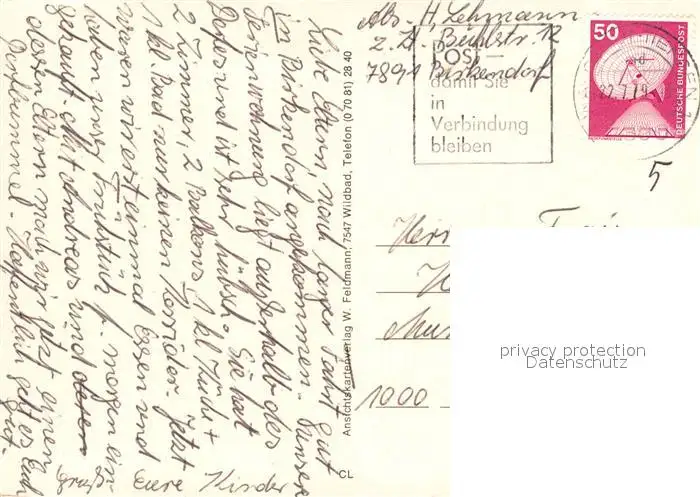 Abs. H. Lehmann
z. Zt. Bühlstr. 12
7891 Birkendorf
Post –
damit Sie
in
Verbindung
bleiben
50
DEUTSCHE BUNDESPOST
5
Herr
Mus
1000
privacy protection
Datenschutz
Ansichtskartenverlag W. Feldmann, 7547 Wildbad, Telefon (0 70 81) 28 40
CL
Liebe Eltern, nach langer Fahrt gut
in Birkendorf angekommen. Unsere
Ferienwohnung liegt außerhalb des
Dorfes und ist sehr hübsch. Sie hat
2 Zimmer, 2 Balkons, 1 kl Küche +
1 kl Bad nur keinen Korridor. Jetzt
waren wir erst einmal Essen und
haben unser Frühstück f. morgen ein-
gekauft. Mit Andreas und dessen
Eltern machen wir jetzt einen
Dorfbummel. Hoffentlich geht es Euch
gut.
Gruß Eure Kinder